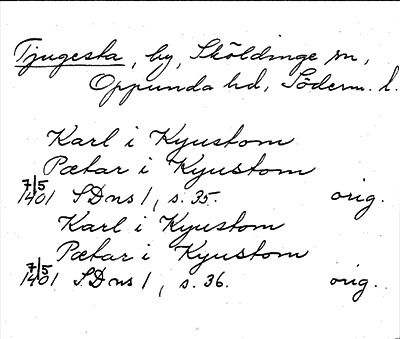 Tjugesta, by, Sköldinge sn,
Oppunda hd, Söderm. l.
Karl i Kyustom
Pætar i Kyustom
7/5 1401 SDns 1, s. 35. orig.
Karl i Kyustom
Pætar i Kyustom
7/5 1401 SDns 1, s. 36. orig.